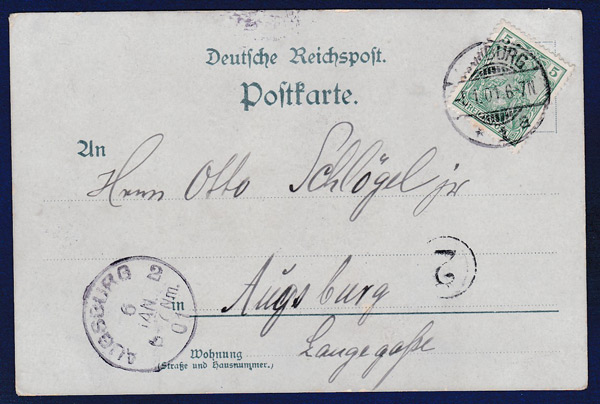 Deutsche Reichspost.
Postkarte.
5
5
BURG
1.01.6-7N
An
Herrn Otto Schlögel jr
AUGSBURG 2
6
JAN
6-7 Nm.
01
in Augsburg
Langegaße
Wohnung
(Straße und Hausnummer.)